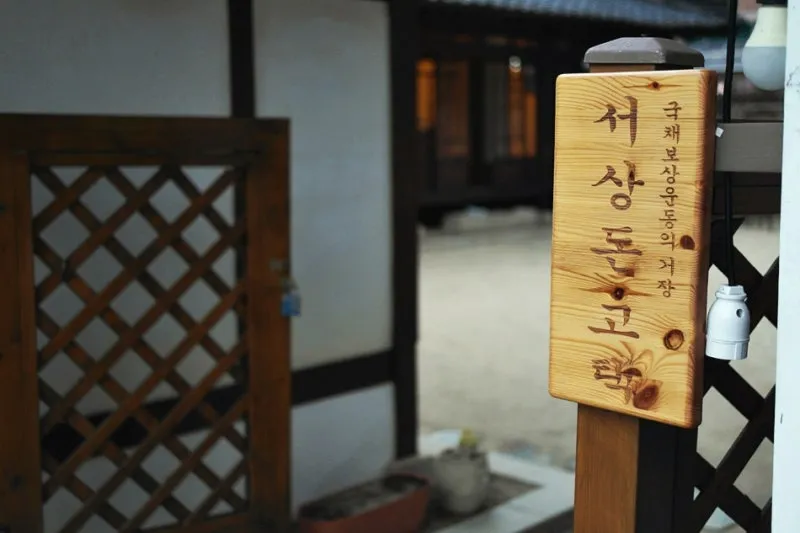 국채보상운동의 거장
서상돈고택